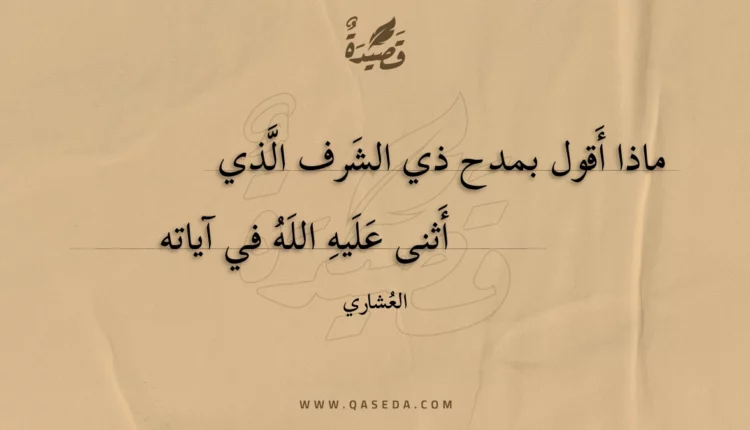 قَصِيدَةٌ
ماذا أَقول بمدح ذي الشَرف الَّذي
أَثنى عَلَيهِ اللَهُ في آياته
العُشاري
WWW.QASEDA.COM